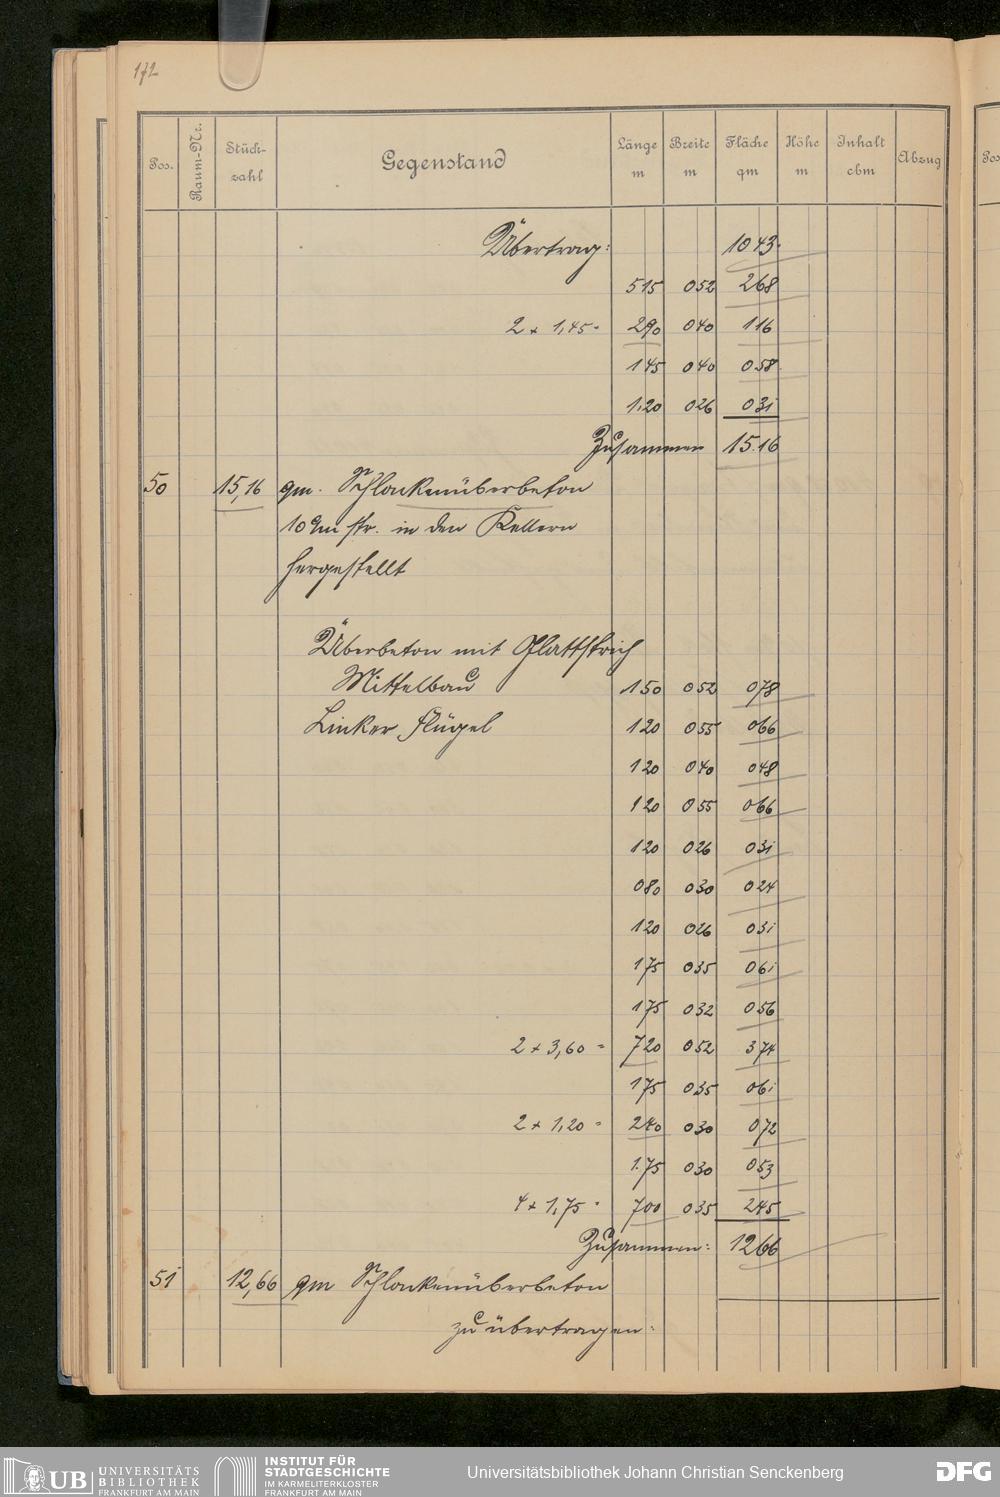 172
Pos. Raum-Nr. Stück-zahl Gegenstand Länge m Breite m Fläche qm Höhe m Inhalt cbm Abzug Pos
Übertrag: 10 43
5 15 0 52 2 68
2 x 1,45 = 2 90 0 40 1 16
1 45 0 40 0 58
1.20 0 26 0 31
Zusammen 15.16
50 15,16 qm. Schlackenüberbeton
10 cm str. in den Kellern
hergestellt
Überbeton mit Glattstrich
Mittelbau 1 50 0 52 0 78
Linker Flügel 1 20 0 55 0 66
1 20 0 40 0 48
1 20 0 55 0 66
1 20 0 26 0 31
0 80 0 30 0 24
1 20 0 26 0 31
1 75 0 35 0 61
1 75 0 32 0 56
2 x 3,60 = 7 20 0 52 3 74
1 75 0 35 0 61
2 x 1,20 = 2 40 0 30 0 72
1.75 0 30 0 53
4 x 1,75 = 7 00 0 35 2 45
Zusammen: 12 66
51 12,66 qm Schlackenüberbeton
zu übertragen:
UB UNIVERSITÄTS
BIBLIOTHEK
FRANKFURT AM MAIN
INSTITUT FÜR
STADTGESCHICHTE
IM KARMELITERKLOSTER
FRANKFURT AM MAIN
Universitätsbibliothek Johann Christian Senckenberg
DFG